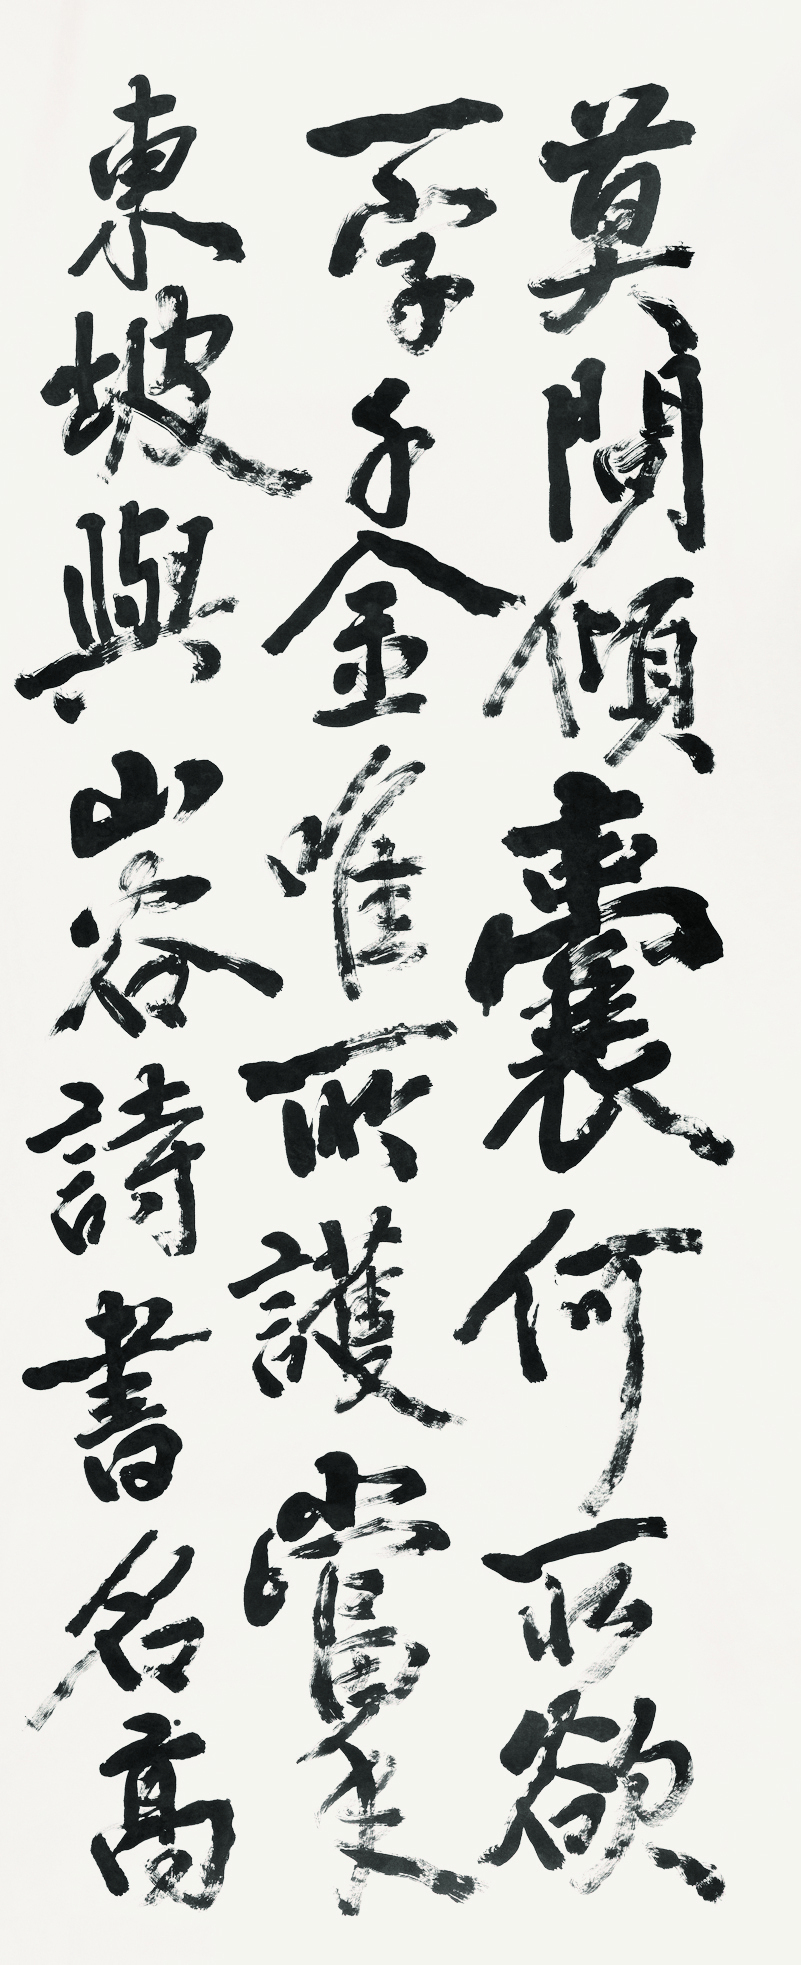 莫問傾囊何所欲
一字千金唯所護當
東坡與山谷詩書名高